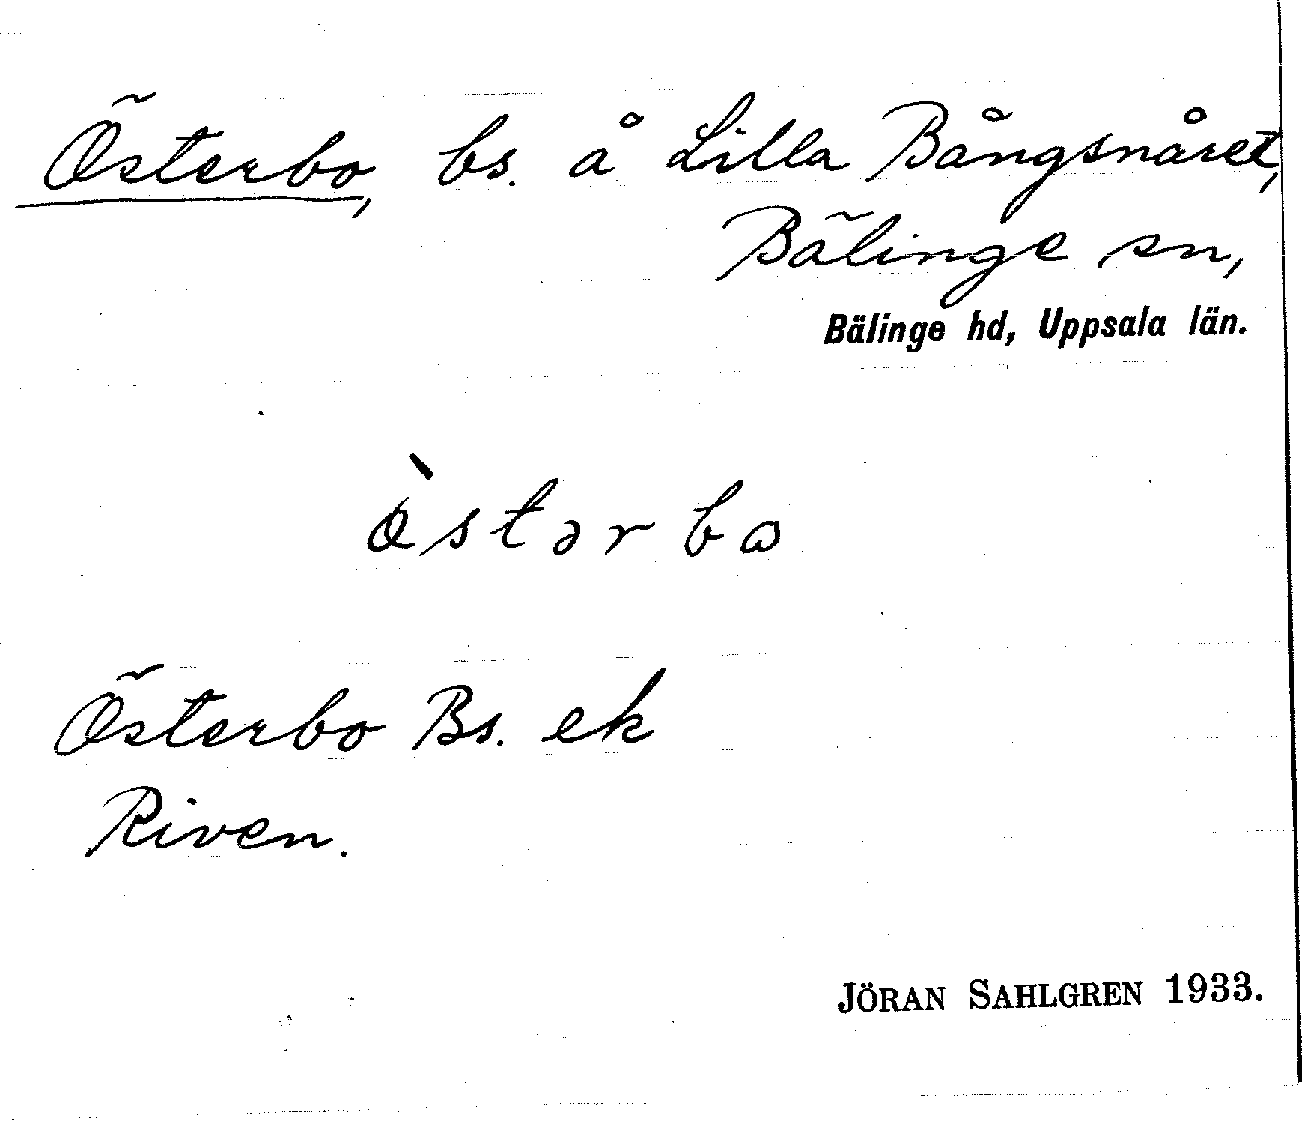 Österbo, bs. å Lilla Bångsnåret,
Bälinge sn,
Bälinge hd, Uppsala län.
ö̀stərbω
Österbo Bs. ek
Riven.
JÖRAN SAHLGREN 1933.